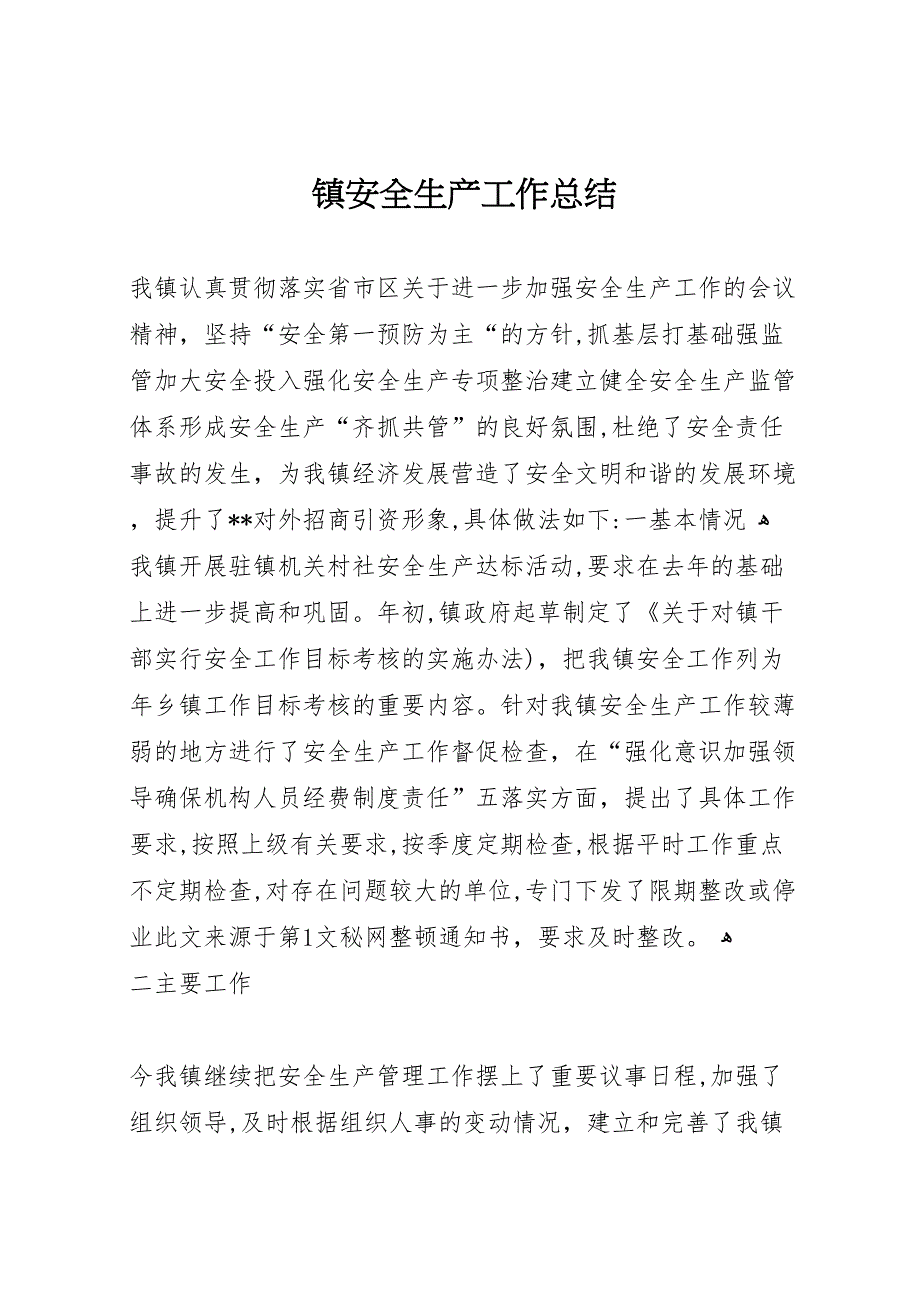 镇安全生产工作总结
我镇认真贯彻落实省市区关于进一步加强安全生产工作的会议
精神，坚持“安全第一预防为主“的方针,抓基层打基础强监
管加大安全投入强化安全生产专项整治建立健全安全生产监管
体系形成安全生产“齐抓共管”的良好氛围,杜绝了安全责任
事故的发生，为我镇经济发展营造了安全文明和谐的发展环境
，提升了**对外招商引资形象,具体做法如下:一基本情况 ﻫ
我镇开展驻镇机关村社安全生产达标活动,要求在去年的基础
上进一步提高和巩固。年初,镇政府起草制定了《关于对镇干
部实行安全工作目标考核的实施办法)，把我镇安全工作列为
年乡镇工作目标考核的重要内容。针对我镇安全生产工作较薄
弱的地方进行了安全生产工作督促检查，在“强化意识加强领
导确保机构人员经费制度责任”五落实方面，提出了具体工作
要求,按照上级有关要求,按季度定期检查,根据平时工作重点
不定期检查,对存在问题较大的单位,专门下发了限期整改或停
业此文来源于第1文秘网整顿通知书，要求及时整改。 ﻫ
二主要工作
今我镇继续把安全生产管理工作摆上了重要议事日程,加强了
组织领导,及时根据组织人事的变动情况，建立和完善了我镇